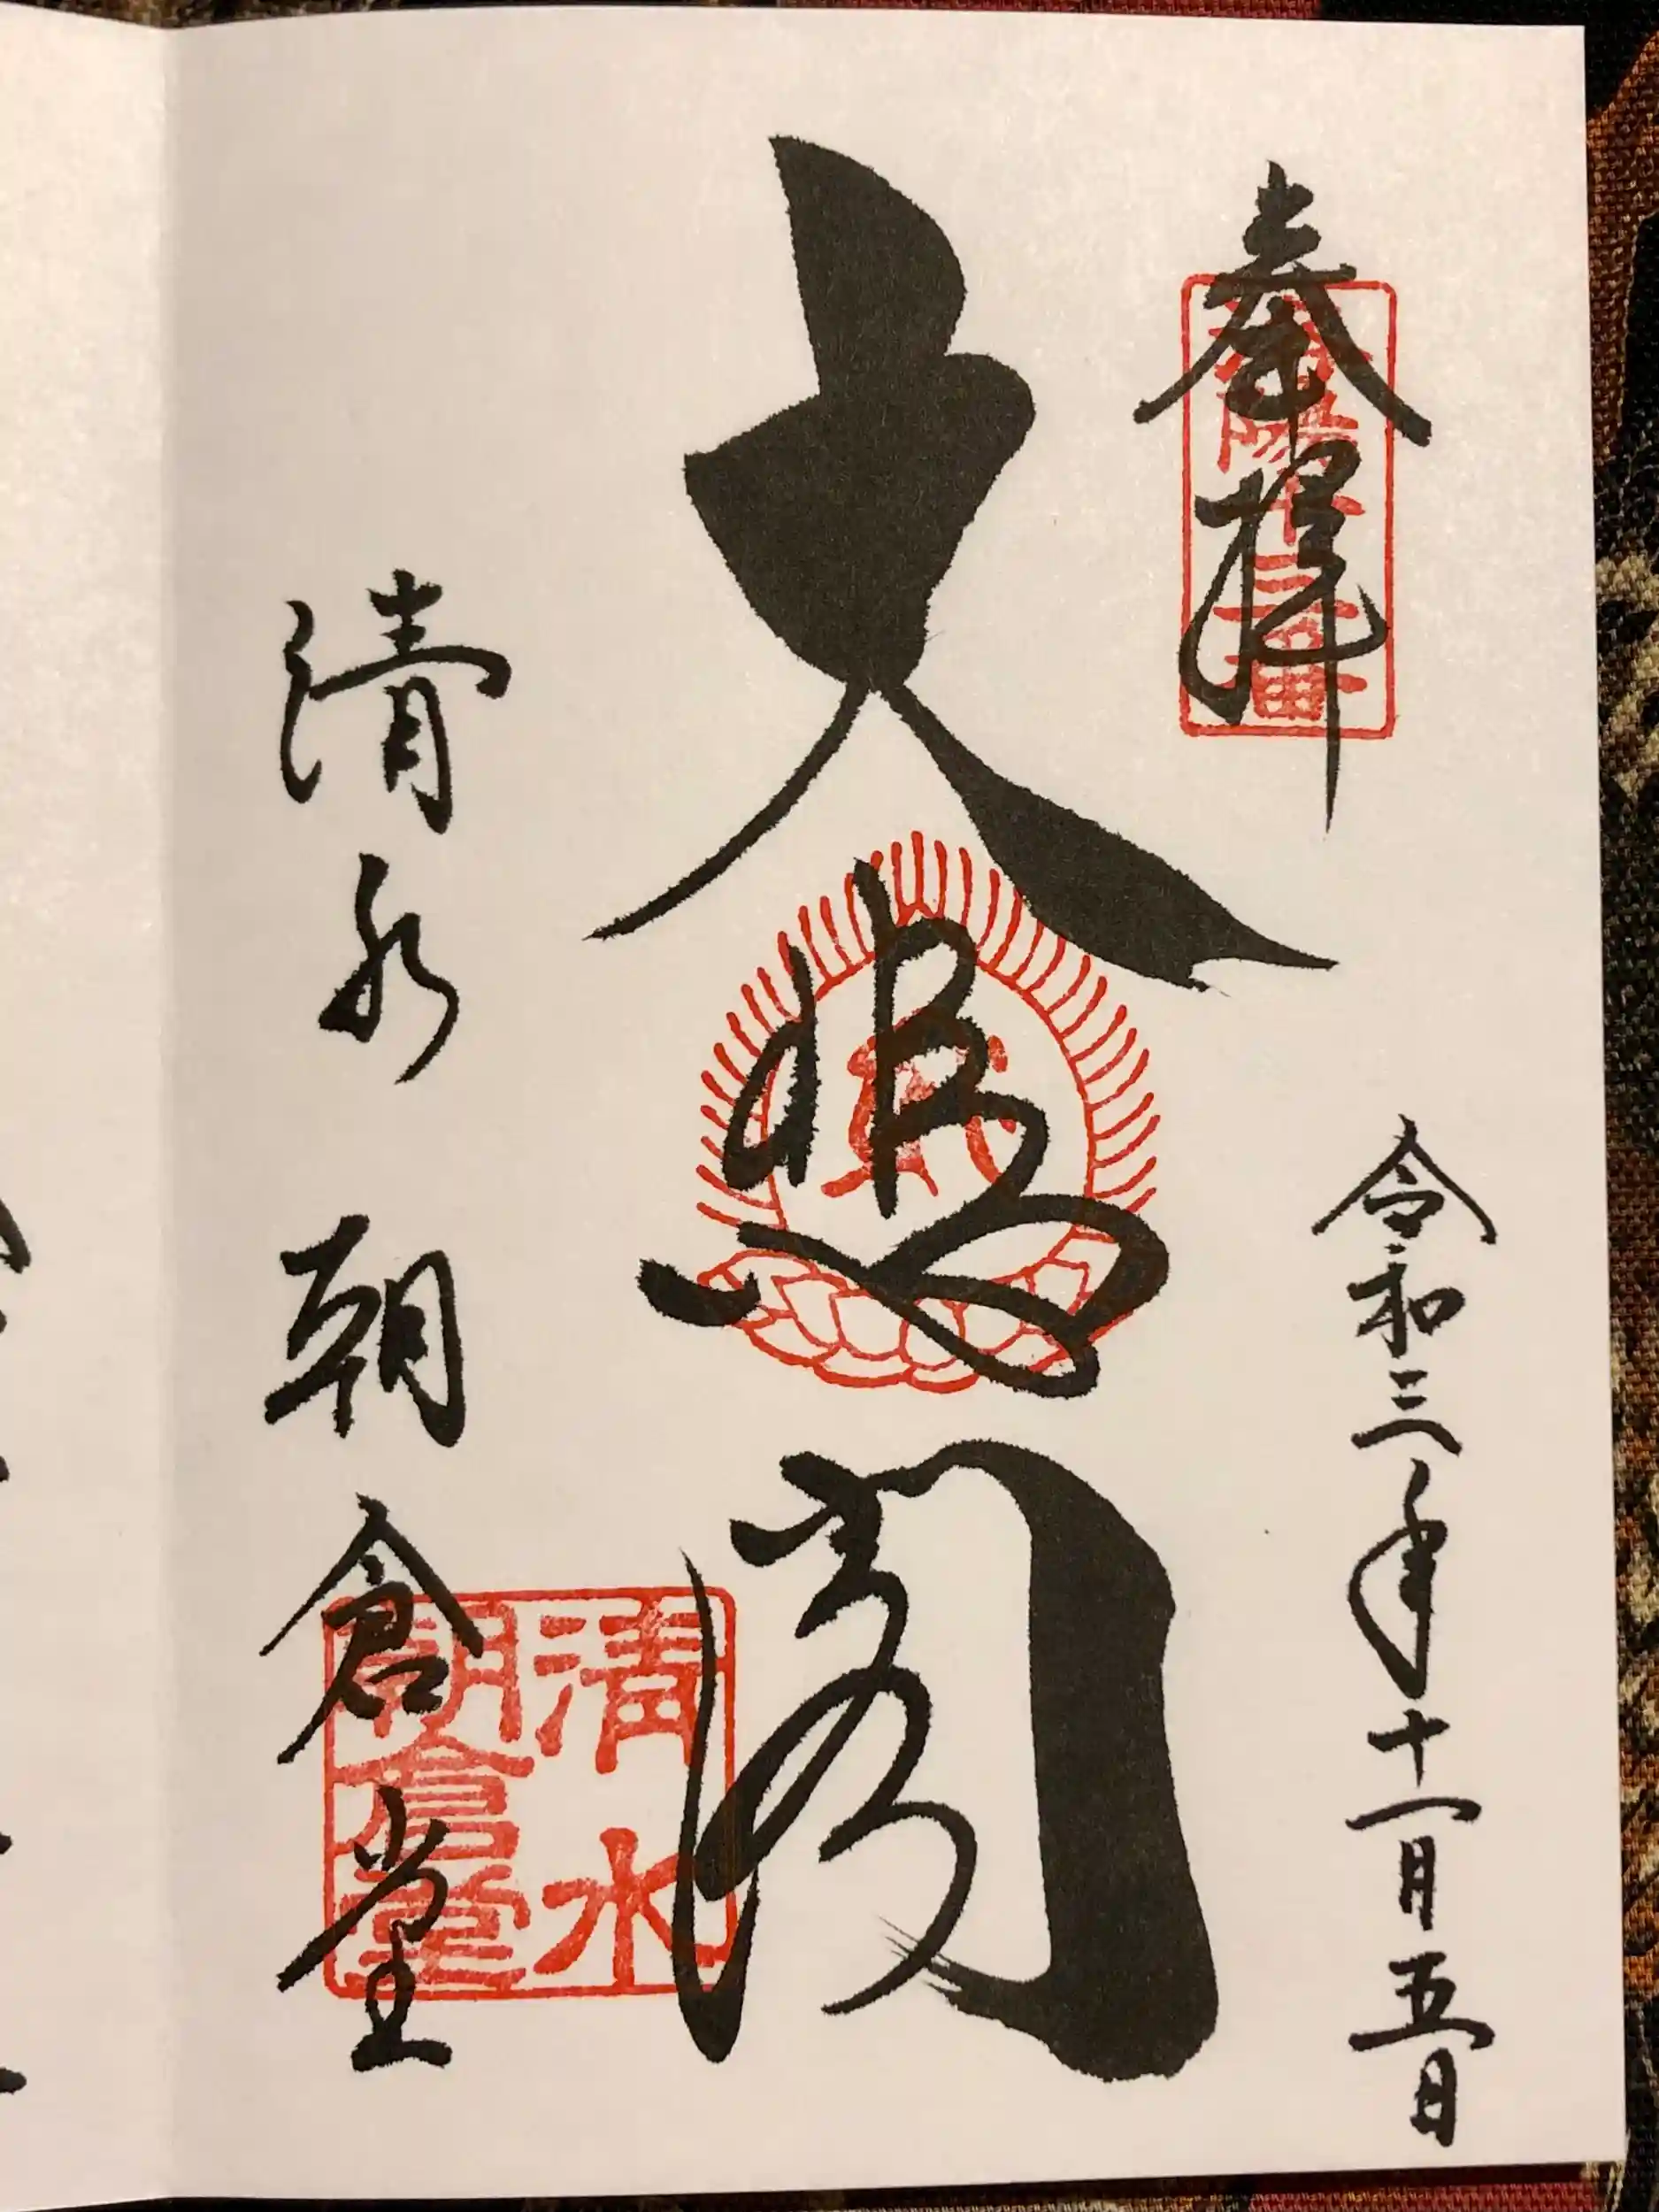 奉拝
洛陽十三番
令和三年十一月五日
大悲閣
清水 朝倉堂
清水
朝倉堂